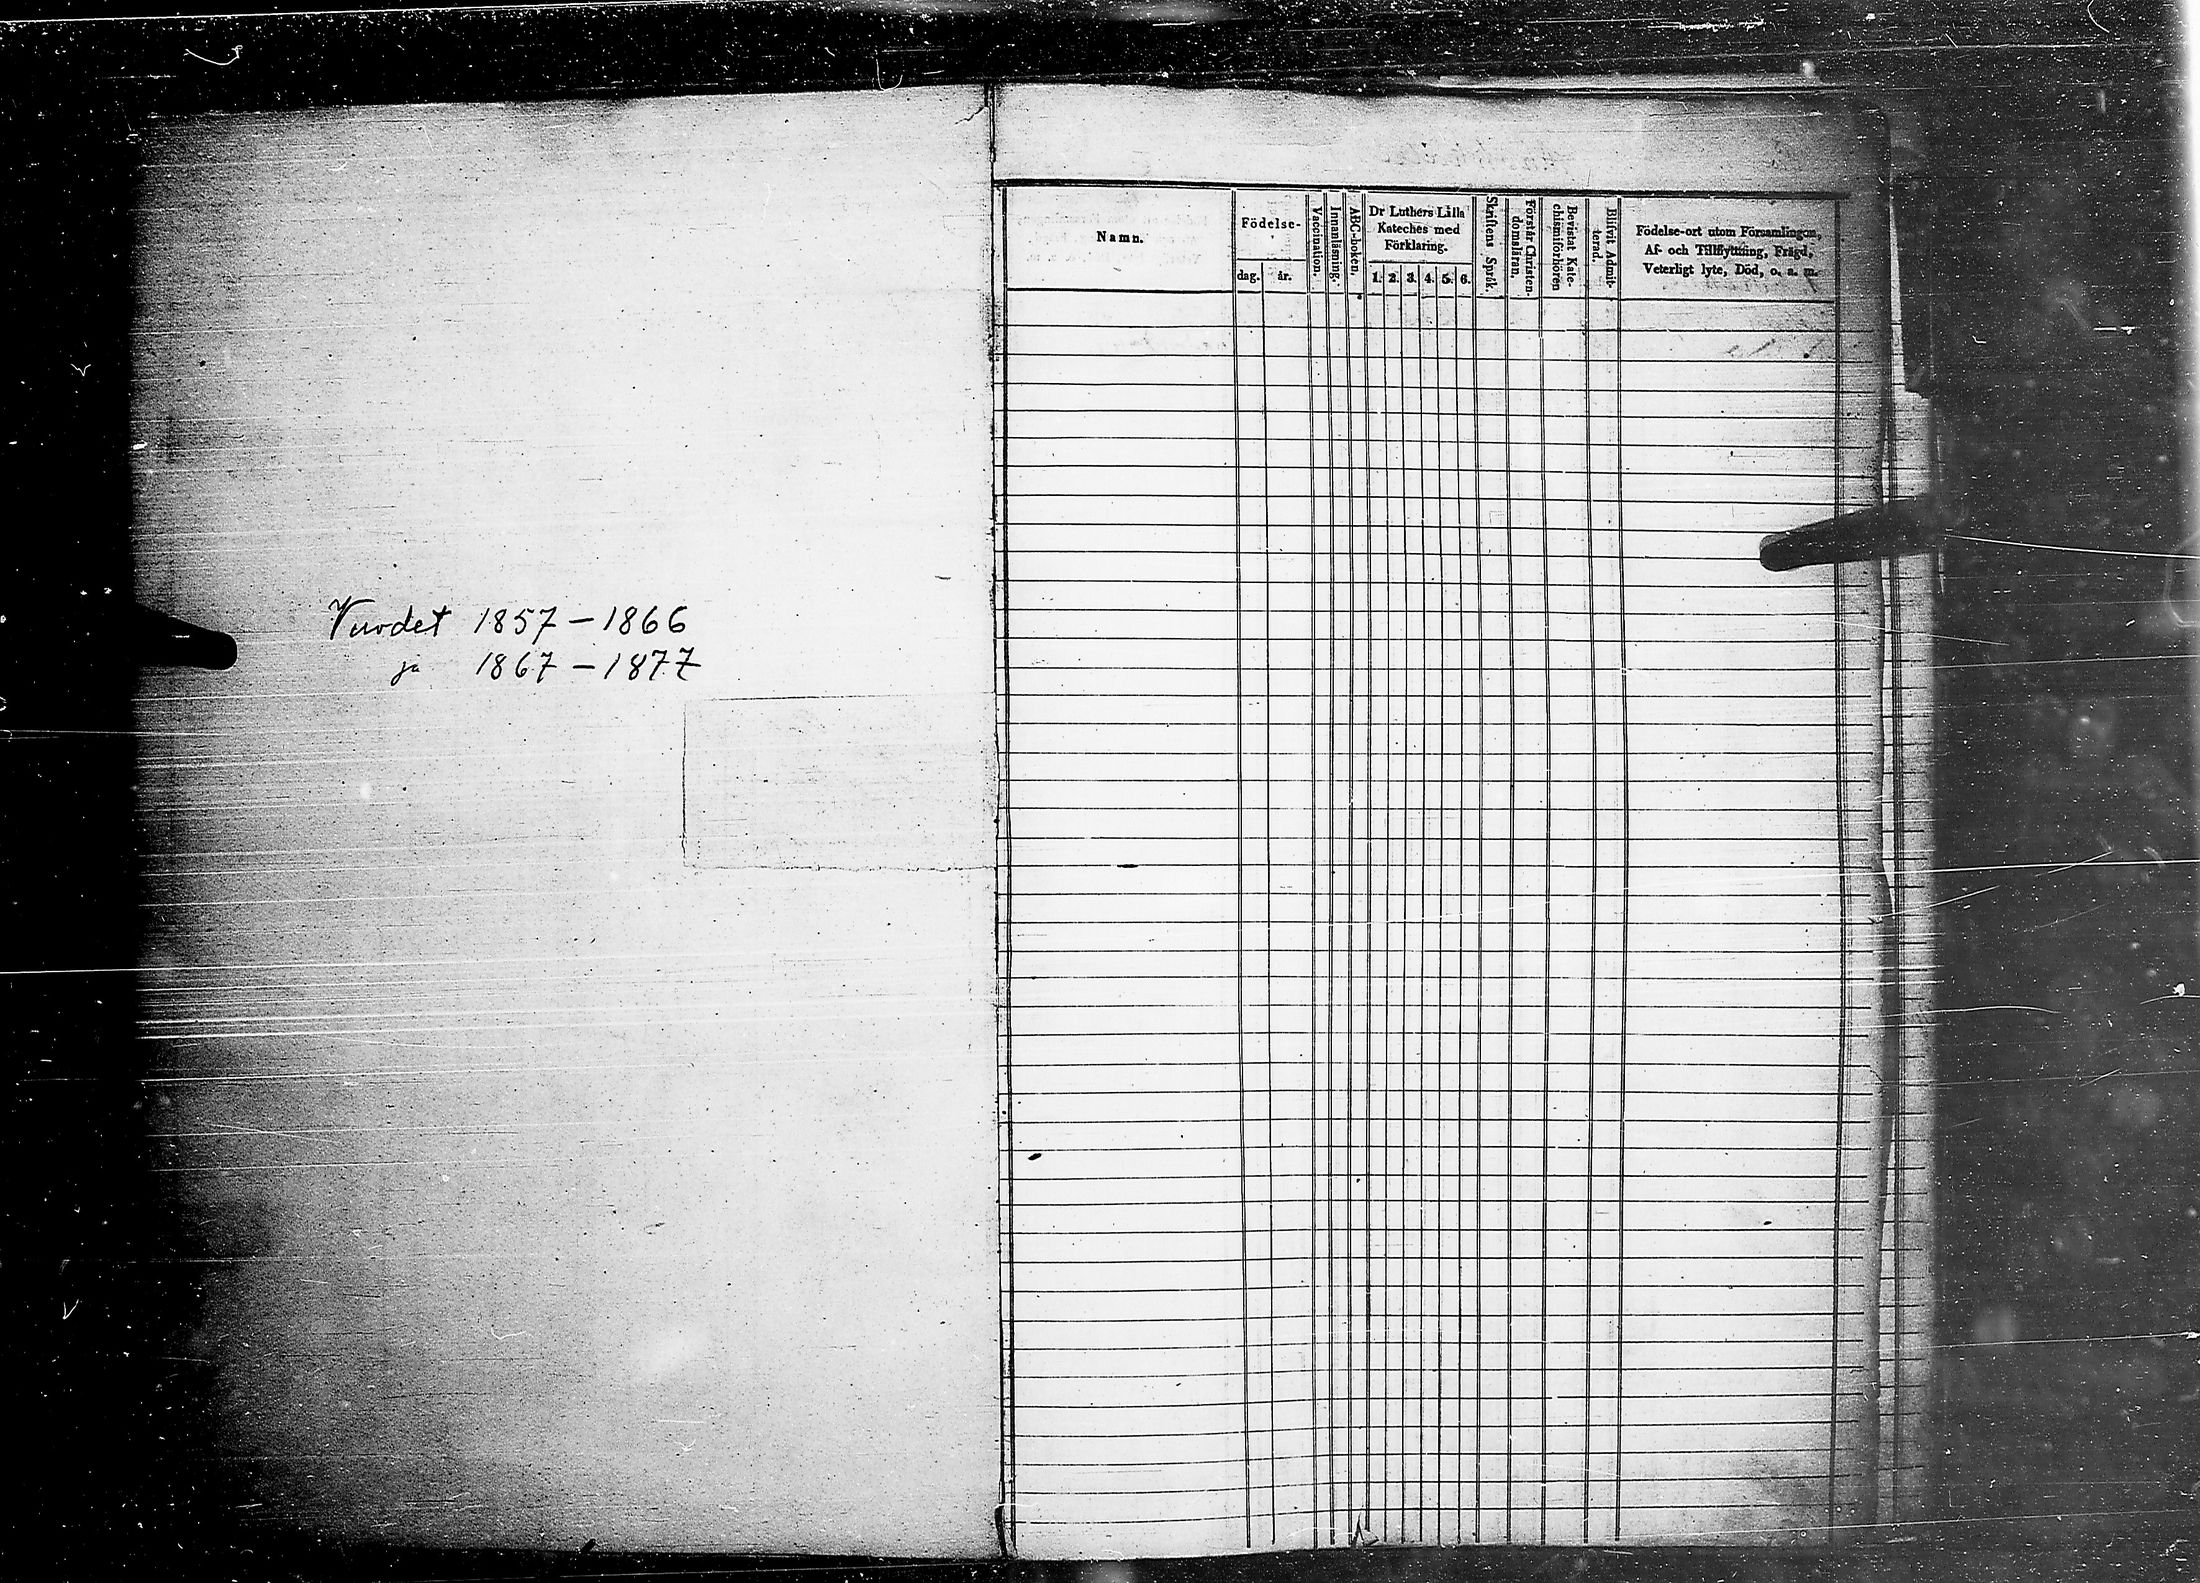 Vuodet 1857–1866
ja 1867–1877
Namn.
Födelse-
dag. år.
Vaccination.
Innanläsning.
ABC-boken.
Dr Luthers Lilla
Kateches med
Förklaring.
1. 2. 3. 4. 5. 6.
Skriftens Språk.
Förstår Christen-
domsläran.
Bevistat Kate-
chismiförhören
Blifvit Admit-
terad.
Födelse-ort utom Församlingen,
Af- och Tillflyttning, Frägd,
Veterligt lyte, Död, o. s. m.